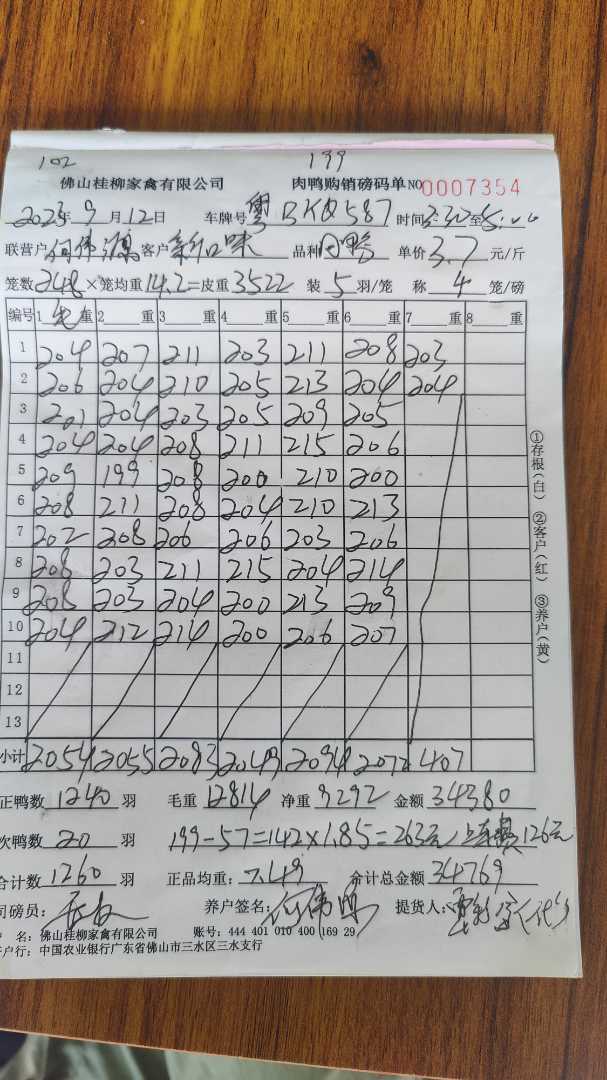 102 199
佛山桂柳家禽有限公司 肉鸭购销磅码单 NO 0007354
2023年9月12日 车牌号 粤BKQ587 时间 3:30至5:00
联营户 何伟源 客户 新口味 品种 肉鸭 单价 3.7 元/斤
笼数 248 ×笼均重 14.2 =皮重 3522 装 5 羽/笼 称 4 笼/磅
编号 1 毛 重 2 重 3 重 4 重 5 重 6 重 7 重 8 重
1 204 207 211 203 211 208 203
2 206 204 210 205 213 204 204
3 201 204 203 205 209 205
4 204 204 208 211 215 206
5 209 199 208 200 210 200
6 208 211 208 204 210 213
7 202 208 206 206 203 206
8 208 203 211 215 204 214
9 208 203 204 200 213 209
10 204 212 214 200 206 207
11
12
13
小计 2054 2055 2083 2049 2094 2072 407
正鸭数 1240 羽 毛重 12814 净重 9292 金额 34380
次鸭数 20 羽 199-57=142×1.85=263元 126元
合计数 1260 羽 正品均重: 7.49 合计总金额 34769
司磅员: 养户签名: 何伟 提货人:
户 名: 佛山桂柳家禽有限公司 账号: 444 401 010 400 169 29
开户行: 中国农业银行广东省佛山市三水区三水支行
①存根(白) ②客户(红) ③养户(黄)